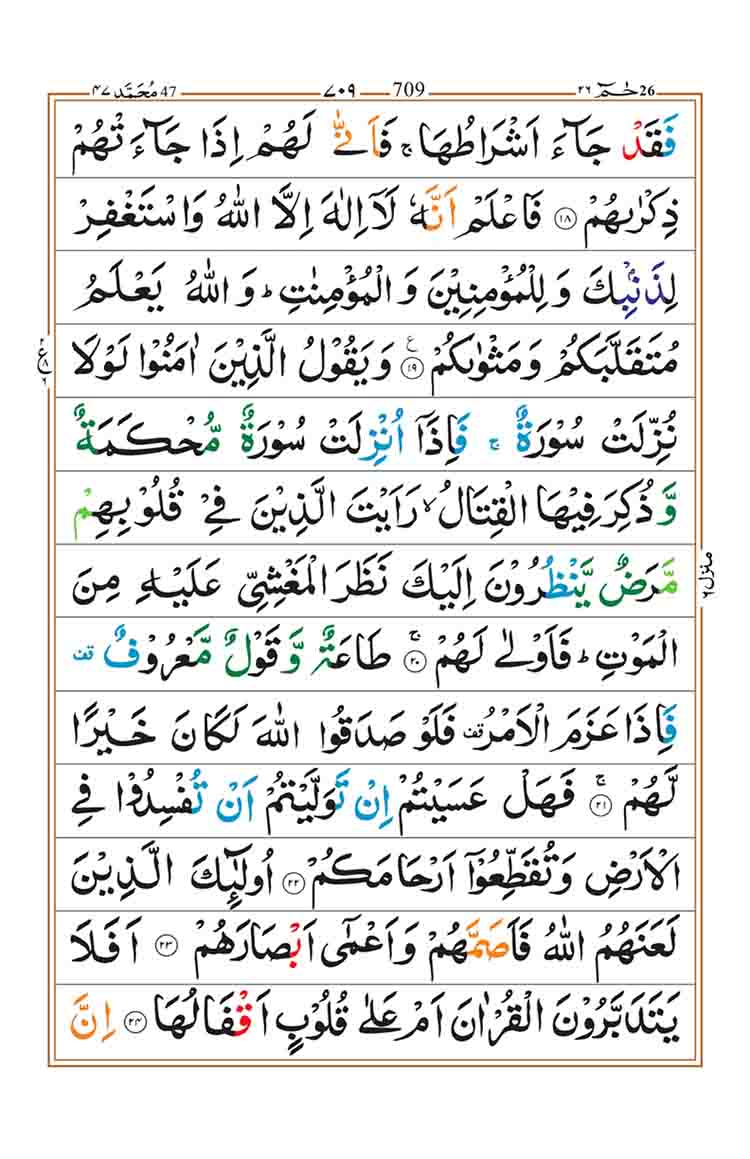 حٰمٓ 26 ۲۶ 709 ۷۰۹ مُحَمَّد 47 ۴۷
فَقَدْ جَآءَ اَشْرَاطُهَا ۚ فَاَنّٰى لَهُمْ اِذَا جَآءَتْهُمْ
ذِكْرٰىهُمْ ﴿۱۸﴾ فَاعْلَمْ اَنَّهٗ لَاۤ اِلٰهَ اِلَّا اللّٰهُ وَاسْتَغْفِرْ
لِذَنْۢبِكَ وَ لِلْمُؤْمِنِيْنَ وَ الْمُؤْمِنٰتِ ؕ وَ اللّٰهُ يَعْلَمُ
مُتَقَلَّبَكُمْ وَمَثْوٰىكُمْ ﴿۱۹﴾ ع وَيَقُوْلُ الَّذِيْنَ اٰمَنُوْا لَوْلَا
ع ۸
نُزِّلَتْ سُوْرَةٌ ۚ فَاِذَاۤ اُنْزِلَتْ سُوْرَةٌ مُّحْكَمَةٌ
وَّ ذُكِرَ فِيْهَا الْقِتَالُ ۙ رَاَيْتَ الَّذِيْنَ فِيْ قُلُوْبِهِمْ
مَّرَضٌ يَّنْظُرُوْنَ اِلَيْكَ نَظَرَ الْمَغْشِيِّ عَلَيْهِ مِنَ
منزل ۶
الْمَوْتِ ؕ فَاَوْلٰى لَهُمْ ﴿۲۰﴾ ۚ طَاعَةٌ وَّ قَوْلٌ مَّعْرُوْفٌ قف
فَاِذَا عَزَمَ الْاَمْرُ قف فَلَوْ صَدَقُوا اللّٰهَ لَكَانَ خَيْرًا
لَّهُمْ ﴿۲۱﴾ ۚ فَهَلْ عَسَيْتُمْ اِنْ تَوَلَّيْتُمْ اَنْ تُفْسِدُوْا فِي
الْاَرْضِ وَتُقَطِّعُوْۤا اَرْحَامَكُمْ ﴿۲۲﴾ اُولٰٓئِكَ الَّذِيْنَ
لَعَنَهُمُ اللّٰهُ فَاَصَمَّهُمْ وَاَعْمٰۤى اَبْصَارَهُمْ ﴿۲۳﴾ اَفَلَا
يَتَدَبَّرُوْنَ الْقُرْاٰنَ اَمْ عَلٰى قُلُوْبٍ اَقْفَالُهَا ﴿۲۴﴾ اِنَّ